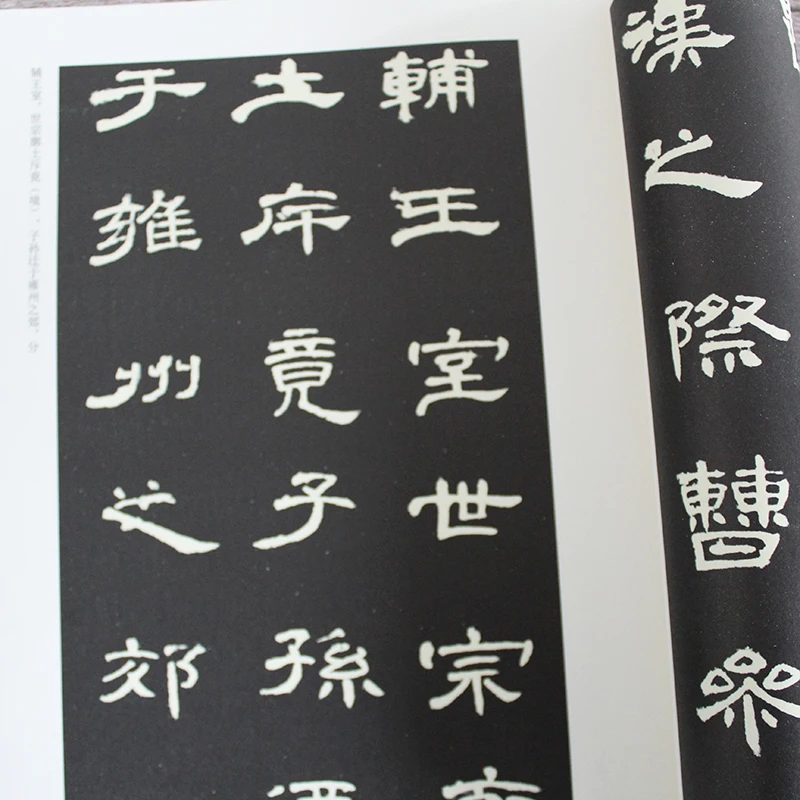 漢之際曹參
輔王室世宗
土斥竟子孫
于雍州之郊
辅王室，世宗廓土斥竟（境），子孙迁于雍州之郊，分